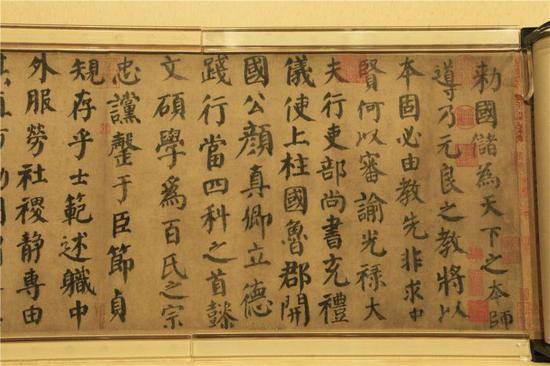 勑國儲為天下之本師
導乃元良之教將以
本固必由教先非求忠
賢何以審諭光祿大
夫行吏部尚書充禮
儀使上柱國魯郡開
國公顏真卿立德
踐行當四科之首懿
文碩學為百氏之宗
忠讜罄于臣節貞
規存乎士範述職中
外服勞社稷靜專由
其直方動用